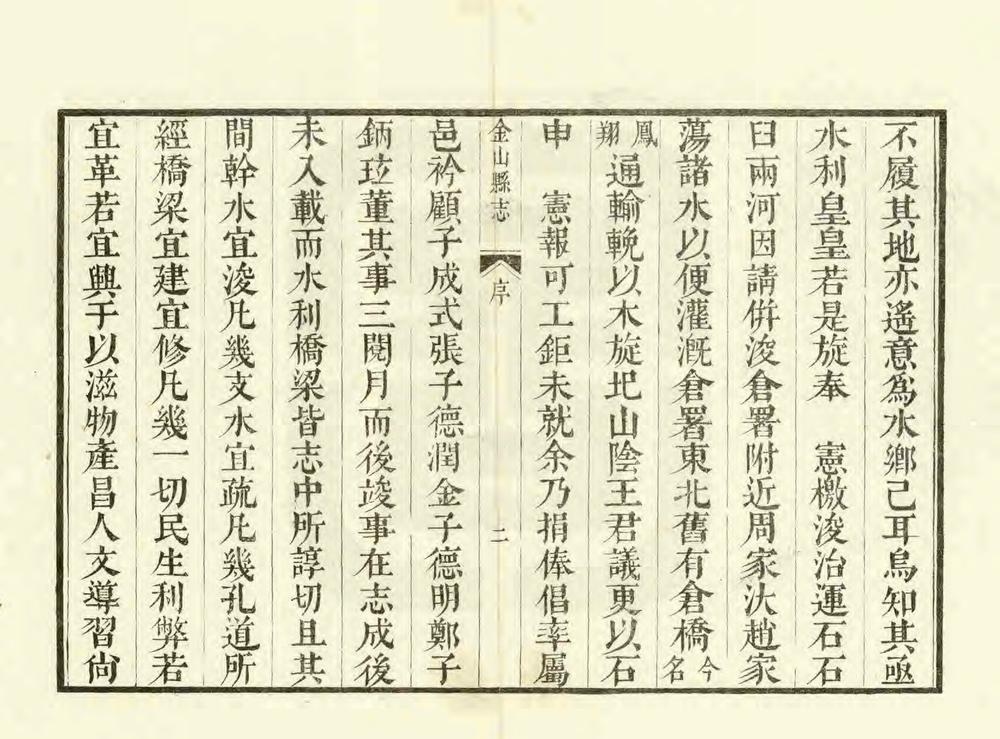 不履其地亦遙意爲水鄉已耳烏知其亟
水利皇皇若是旋奉　憲檄浚治運石石
臼兩河因請併浚倉署附近周家汏趙家
蕩諸水以便灌漑倉署東北舊有倉橋今名
鳳翔通輸輓以木旋圯山陰王君議更以石
申　憲報可工鉅未就余乃捐俸倡率屬
金山縣志　序　二
邑衿顧子成式張子德潤金子德明鄭子
鈵㺭董其事三閱月而後竣事在志成後
未入載而水利橋梁皆志中所諄切且其
間幹水宜浚凡幾支水宜疏凡幾孔道所
經橋梁宜建宜修凡幾一切民生利弊若
宜革若宜興于以滋物產昌人文導習尙